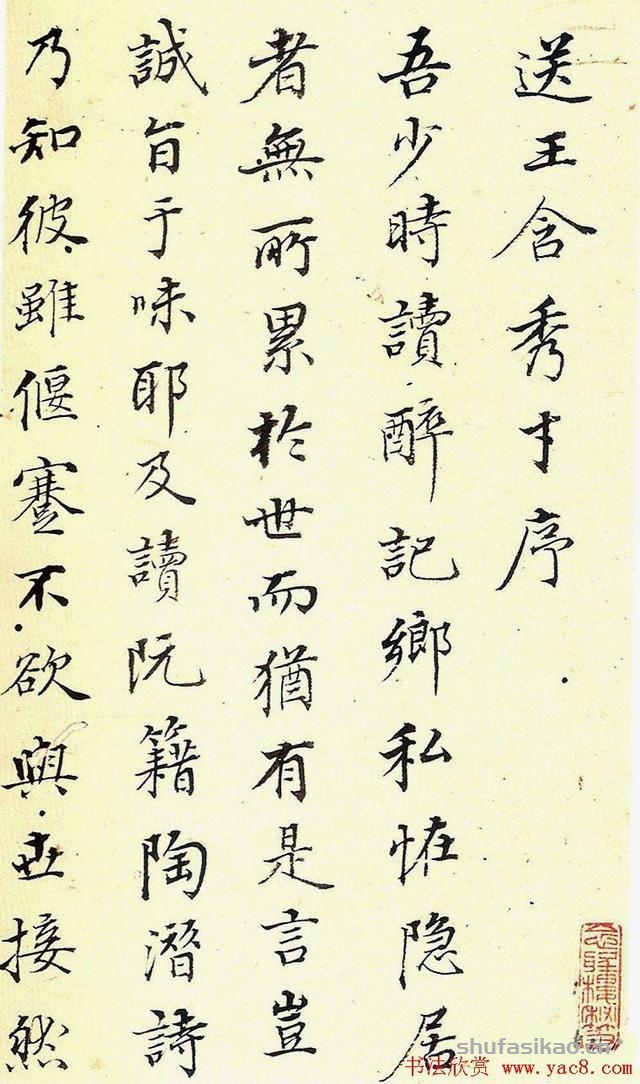 送王含秀才序
吾少時讀醉記鄉私恠隐居
者無所累於世而猶有是言豈
誠旨于味耶及讀阮籍陶潛詩
乃知彼雖偃蹇不欲與世接然
shufasikao.cn
书法欣赏 www.yac8.com